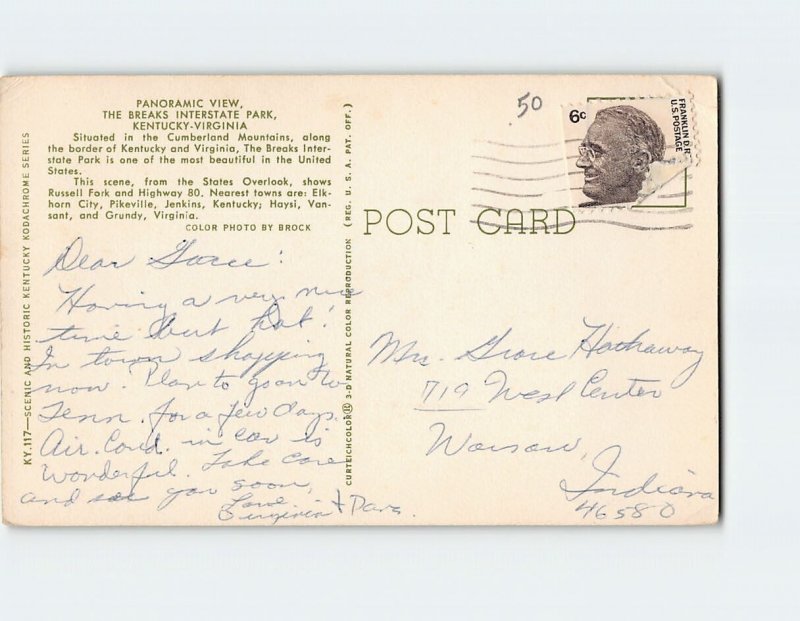 PANORAMIC VIEW,
THE BREAKS INTERSTATE PARK,
KENTUCKY-VIRGINIA
Situated in the Cumberland Mountains, along
the border of Kentucky and Virginia, The Breaks Inter-
state Park is one of the most beautiful in the United
States.
This scene, from the States Overlook, shows
Russell Fork and Highway 80. Nearest towns are: Elk-
horn City, Pikeville, Jenkins, Kentucky; Haysi, Van-
sant, and Grundy, Virginia.
COLOR PHOTO BY BROCK
KY.117—SCENIC AND HISTORIC KENTUCKY KODACHROME SERIES
Dear Grace:
Having a very nice
time but hot!
In town shopping
now. Plan to go on to
Tenn. for a few days.
Air. Cond. in car is
Wonderful. Take care
and see you soon,
Love
Virginia +
CURTEICHCOLOR® 3-D NATURAL COLOR REPRODUCTION (REG. U. S. A. PAT. OFF.)
POST CARD
50
6c
FRANKLIN D.R
U.S. POSTAGE
Mrs. Grace Hathaway
719 West Center
Warsaw,
Indiana
46580